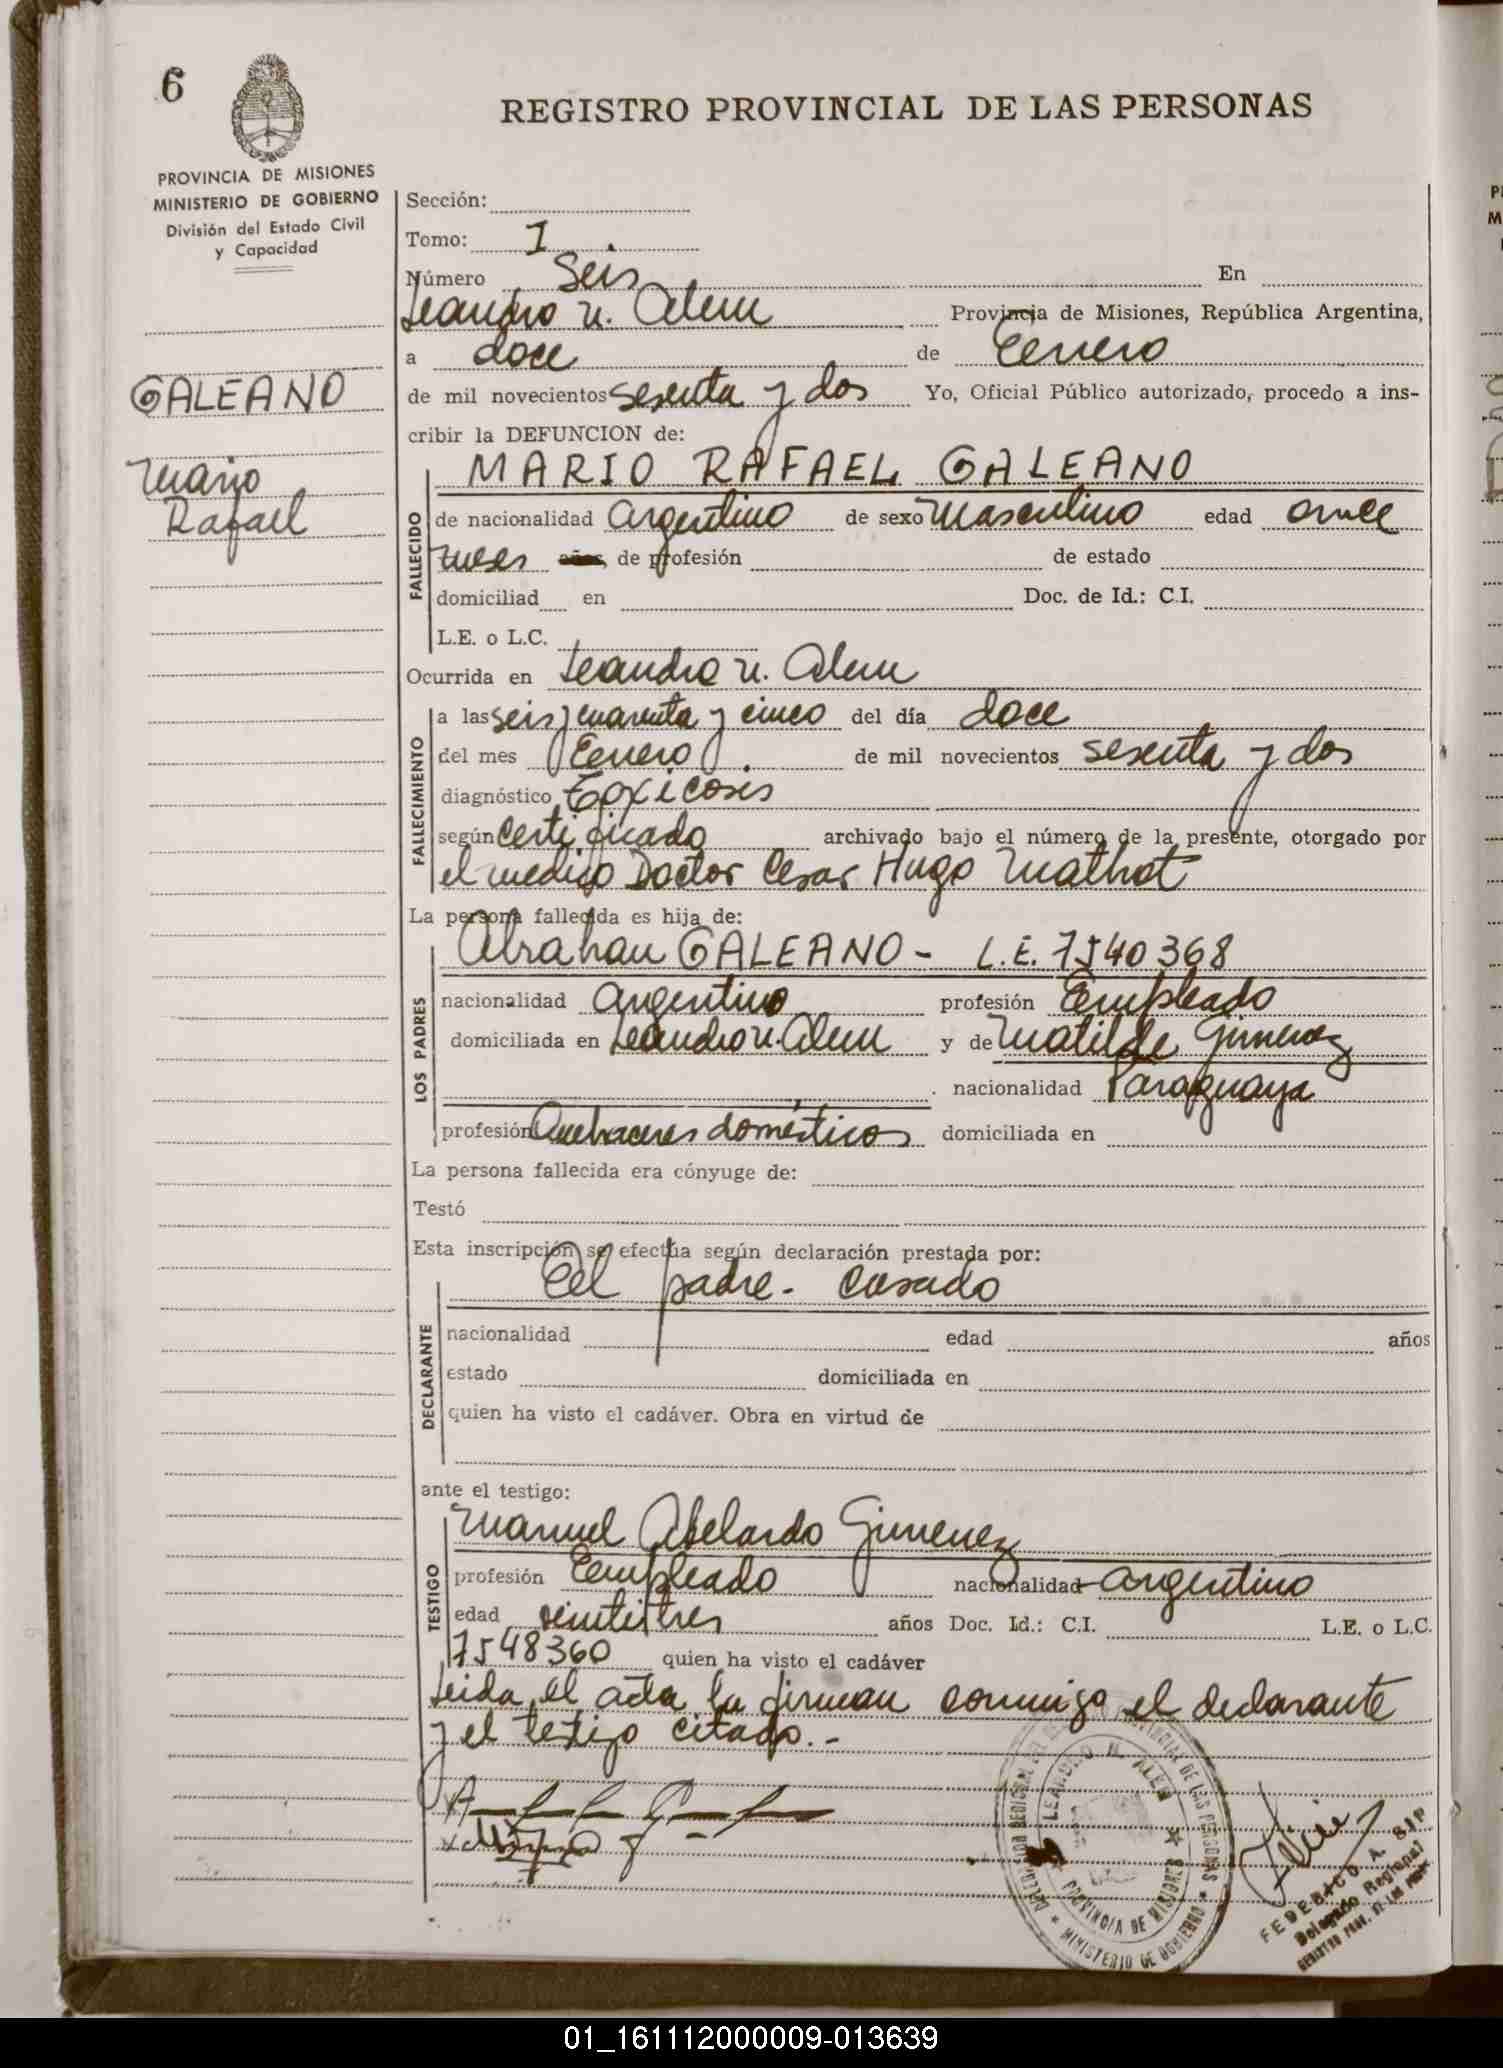 6
REGISTRO PROVINCIAL DE LAS PERSONAS
PROVINCIA DE MISIONES
MINISTERIO DE GOBIERNO
División del Estado Civil
y Capacidad
GALEANO
Mario
Rafael
Sección:
Tomo: I
Número Seis En
Leandro N. Alem Provincia de Misiones, República Argentina,
a doce de Enero
de mil novecientos sesenta y dos Yo, Oficial Público autorizado, procedo a ins-
cribir la DEFUNCION de:
MARIO RAFAEL GALEANO
FALLECIDO
de nacionalidad Argentino de sexo Masculino edad once
meses años, de profesión de estado
domiciliad en Doc. de Id.: C.I.
L.E. o L.C.
Ocurrida en Leandro N. Alem
FALLECIMIENTO
a las seis y cuarenta y cinco del día doce
del mes Enero de mil novecientos sesenta y dos
diagnóstico Toxicosis
según Certificado archivado bajo el número de la presente, otorgado por
el medico Doctor Cesar Hugo Mathot
La persona fallecida es hija de:
LOS PADRES
Abrahan GALEANO - L.E. 7540368
nacionalidad Argentino profesión Empleado
domiciliada en Leandro N. Alem y de Matilde Gimenez
nacionalidad Paraguaya
profesión Quehaceres domésticos domiciliada en
La persona fallecida era cónyuge de:
Testó
Esta inscripción se efectúa según declaración prestada por:
DECLARANTE
El padre - casado
nacionalidad edad años
estado domiciliada en
quien ha visto el cadáver. Obra en virtud de
ante el testigo:
TESTIGO
Manuel Abelardo Gimenez
profesión Empleado nacionalidad Argentino
edad veintitres años Doc. Id.: C.I. L.E. o L.C.
7548360 quien ha visto el cadáver
Leida el acta la firman conmigo el declarante
y el testigo citado. -
LEANDRO N. ALEM
PROVINCIA DE MISIONES
MINISTERIO DE GOBIERNO
FEDERICO A.
Delegado Regional
01_161112000009-013639